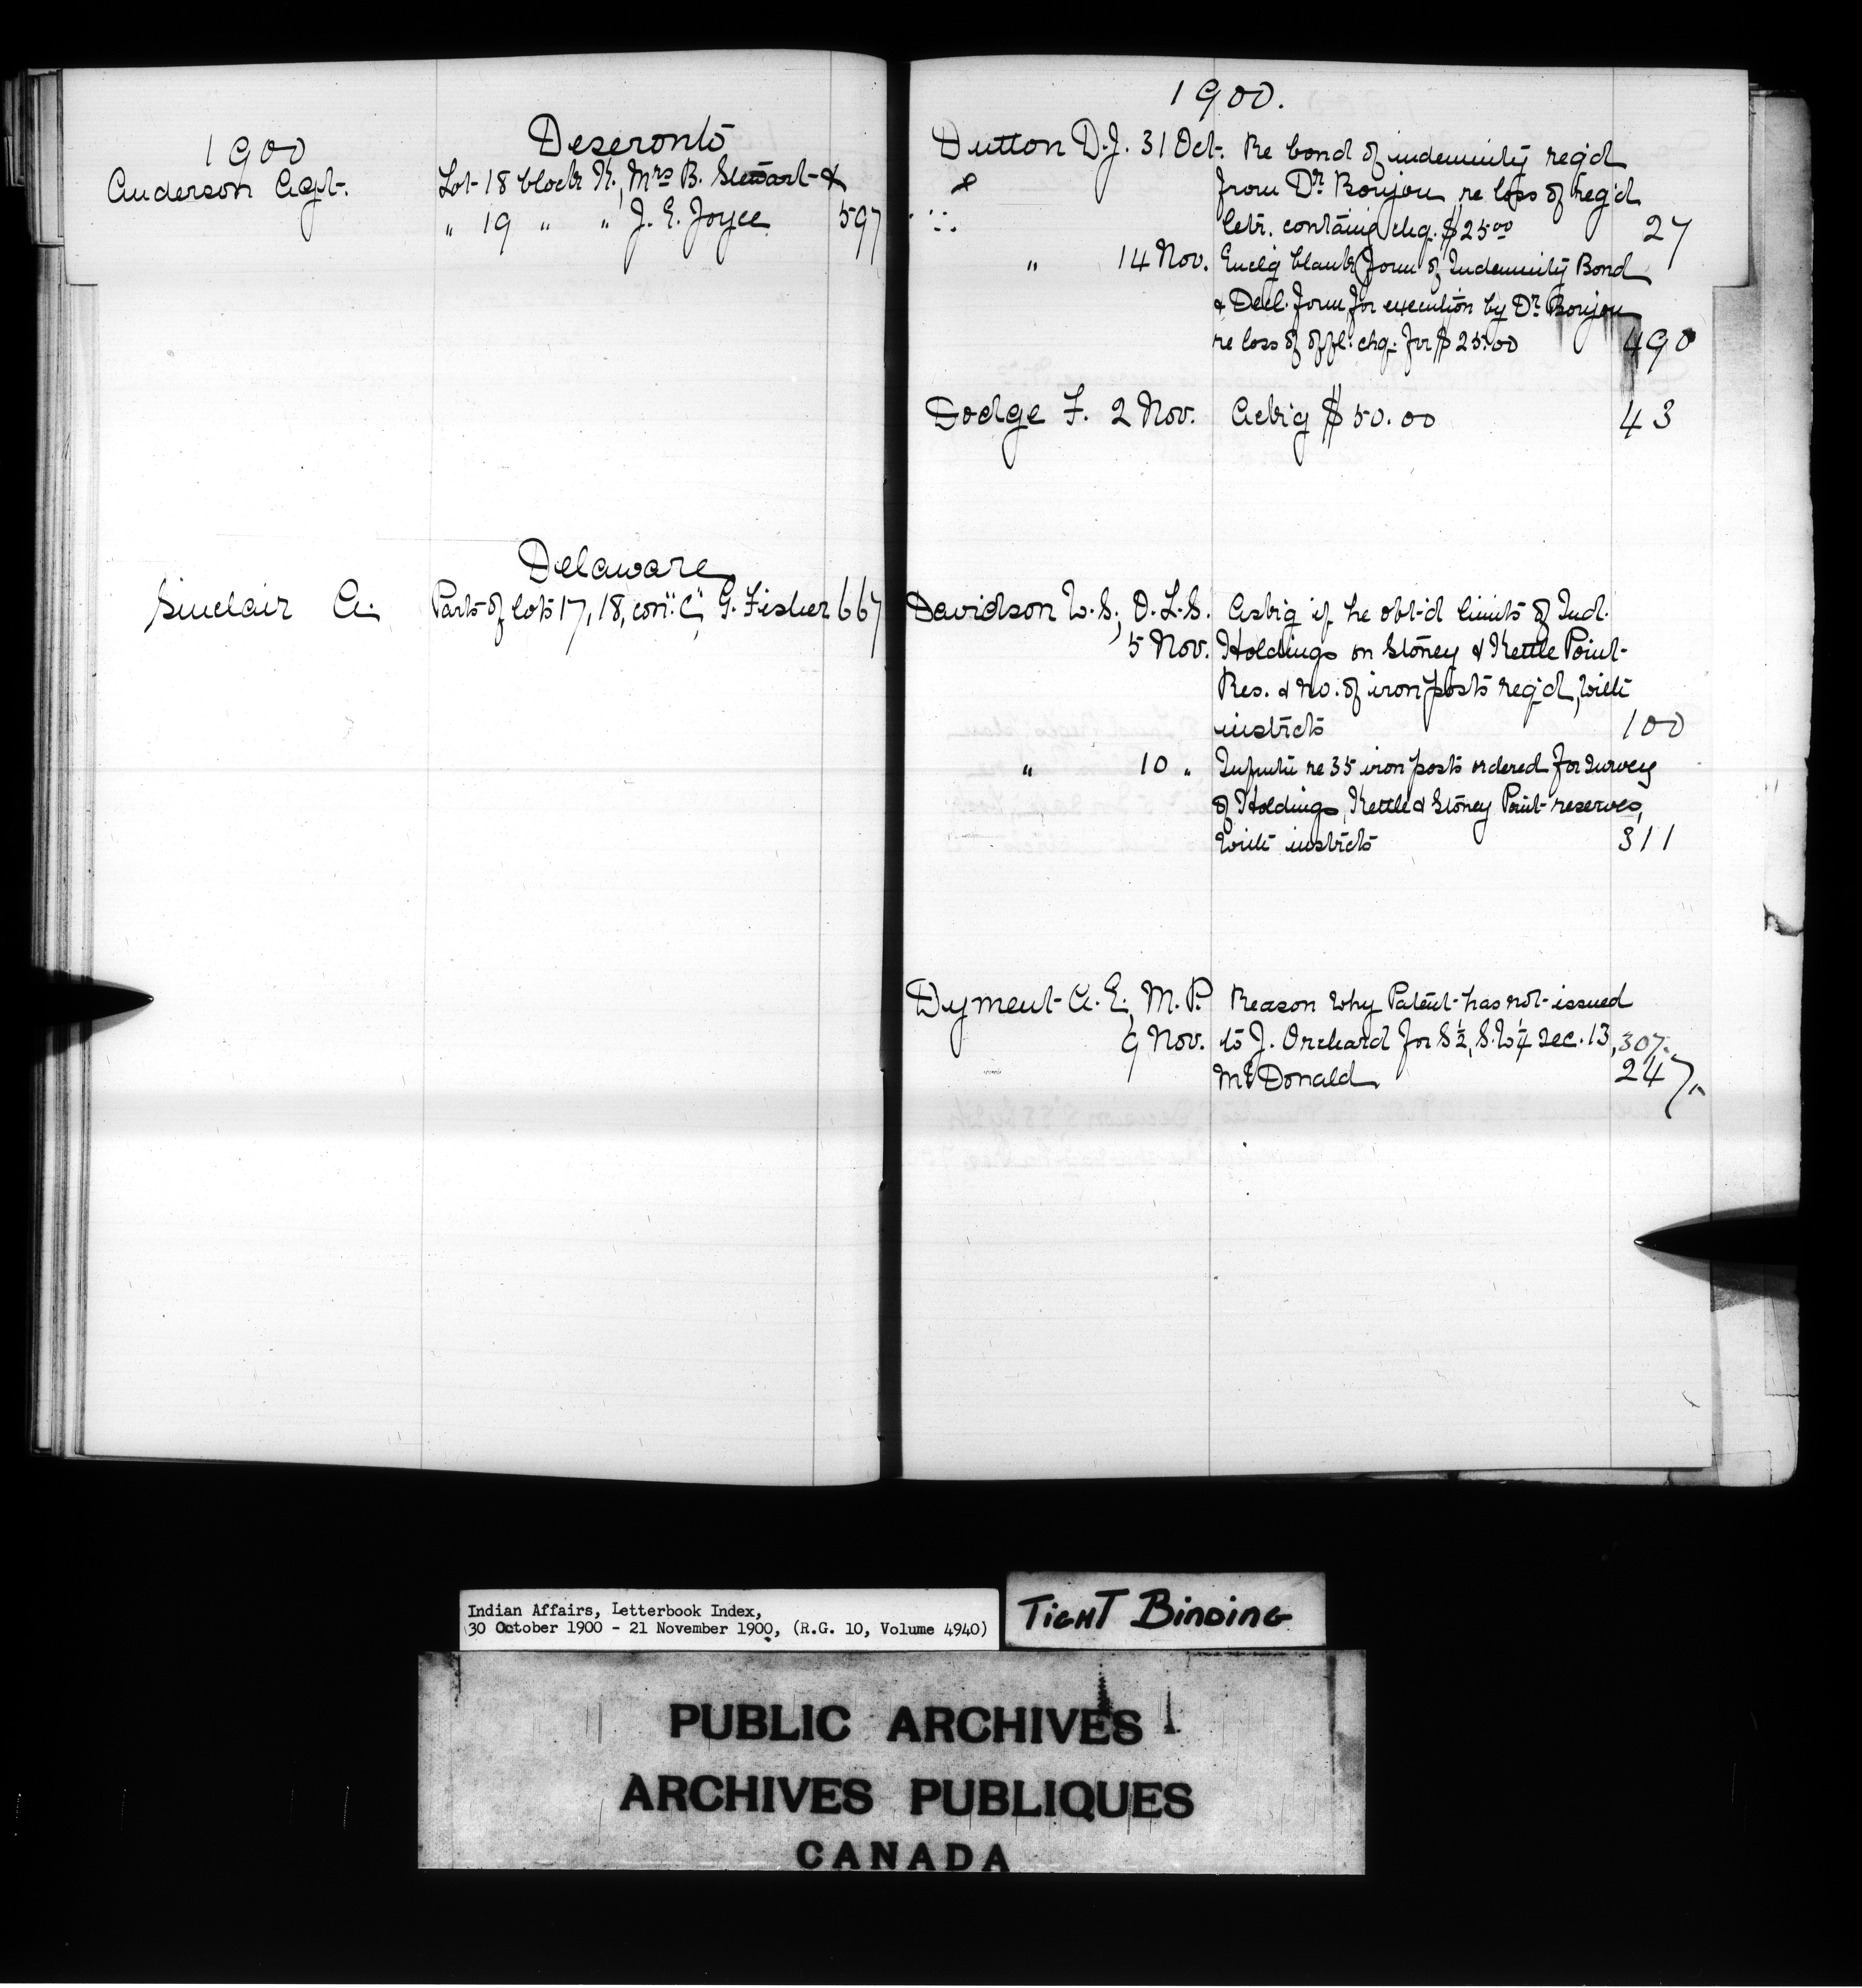 1900
Deseronto
Anderson Agt. Lot 18 block K., Mrs B. Stewart &
" 19 " " J. E. Joyce 597
Delaware
Sinclair A. Parts of lots 17, 18, con. "C", G. Fisher 667
1900.
Dutton D.J. 31 Oct. Re bond of indemnity req'd
from Dr. Bonjou re loss of reg'd
letr. containg chq. $25 00 27
" 14 Nov. Enclg blank form of Indemnity Bond
& Decl. form for execution by Dr. Bonjou
re loss of offl. chq. for $25.00 490
Dodge F. 2 Nov. Ackig $50.00 43
Davidson W.S., O.L.S. Askig if he obt'd limits of Ind.
5 Nov. Holdings on Stoney & Kettle Point
Res. & no. of iron posts req'd, with
instrcts 100
" 10 " re 35 iron posts ordered for survey
of Holdings, Kettle & Stoney Point reserves,
with instrcts 311
Dyment A. E., M.P. Reason why Patent has not issued
9 Nov. to J. Orchard for S½, S.W¼ sec. 13, 307.
McDonald 247.
Indian Affairs, Letterbook Index,
30 October 1900 - 21 November 1900, (R.G. 10, Volume 4940)
TIGHT BINDING
PUBLIC ARCHIVES
ARCHIVES PUBLIQUES
CANADA